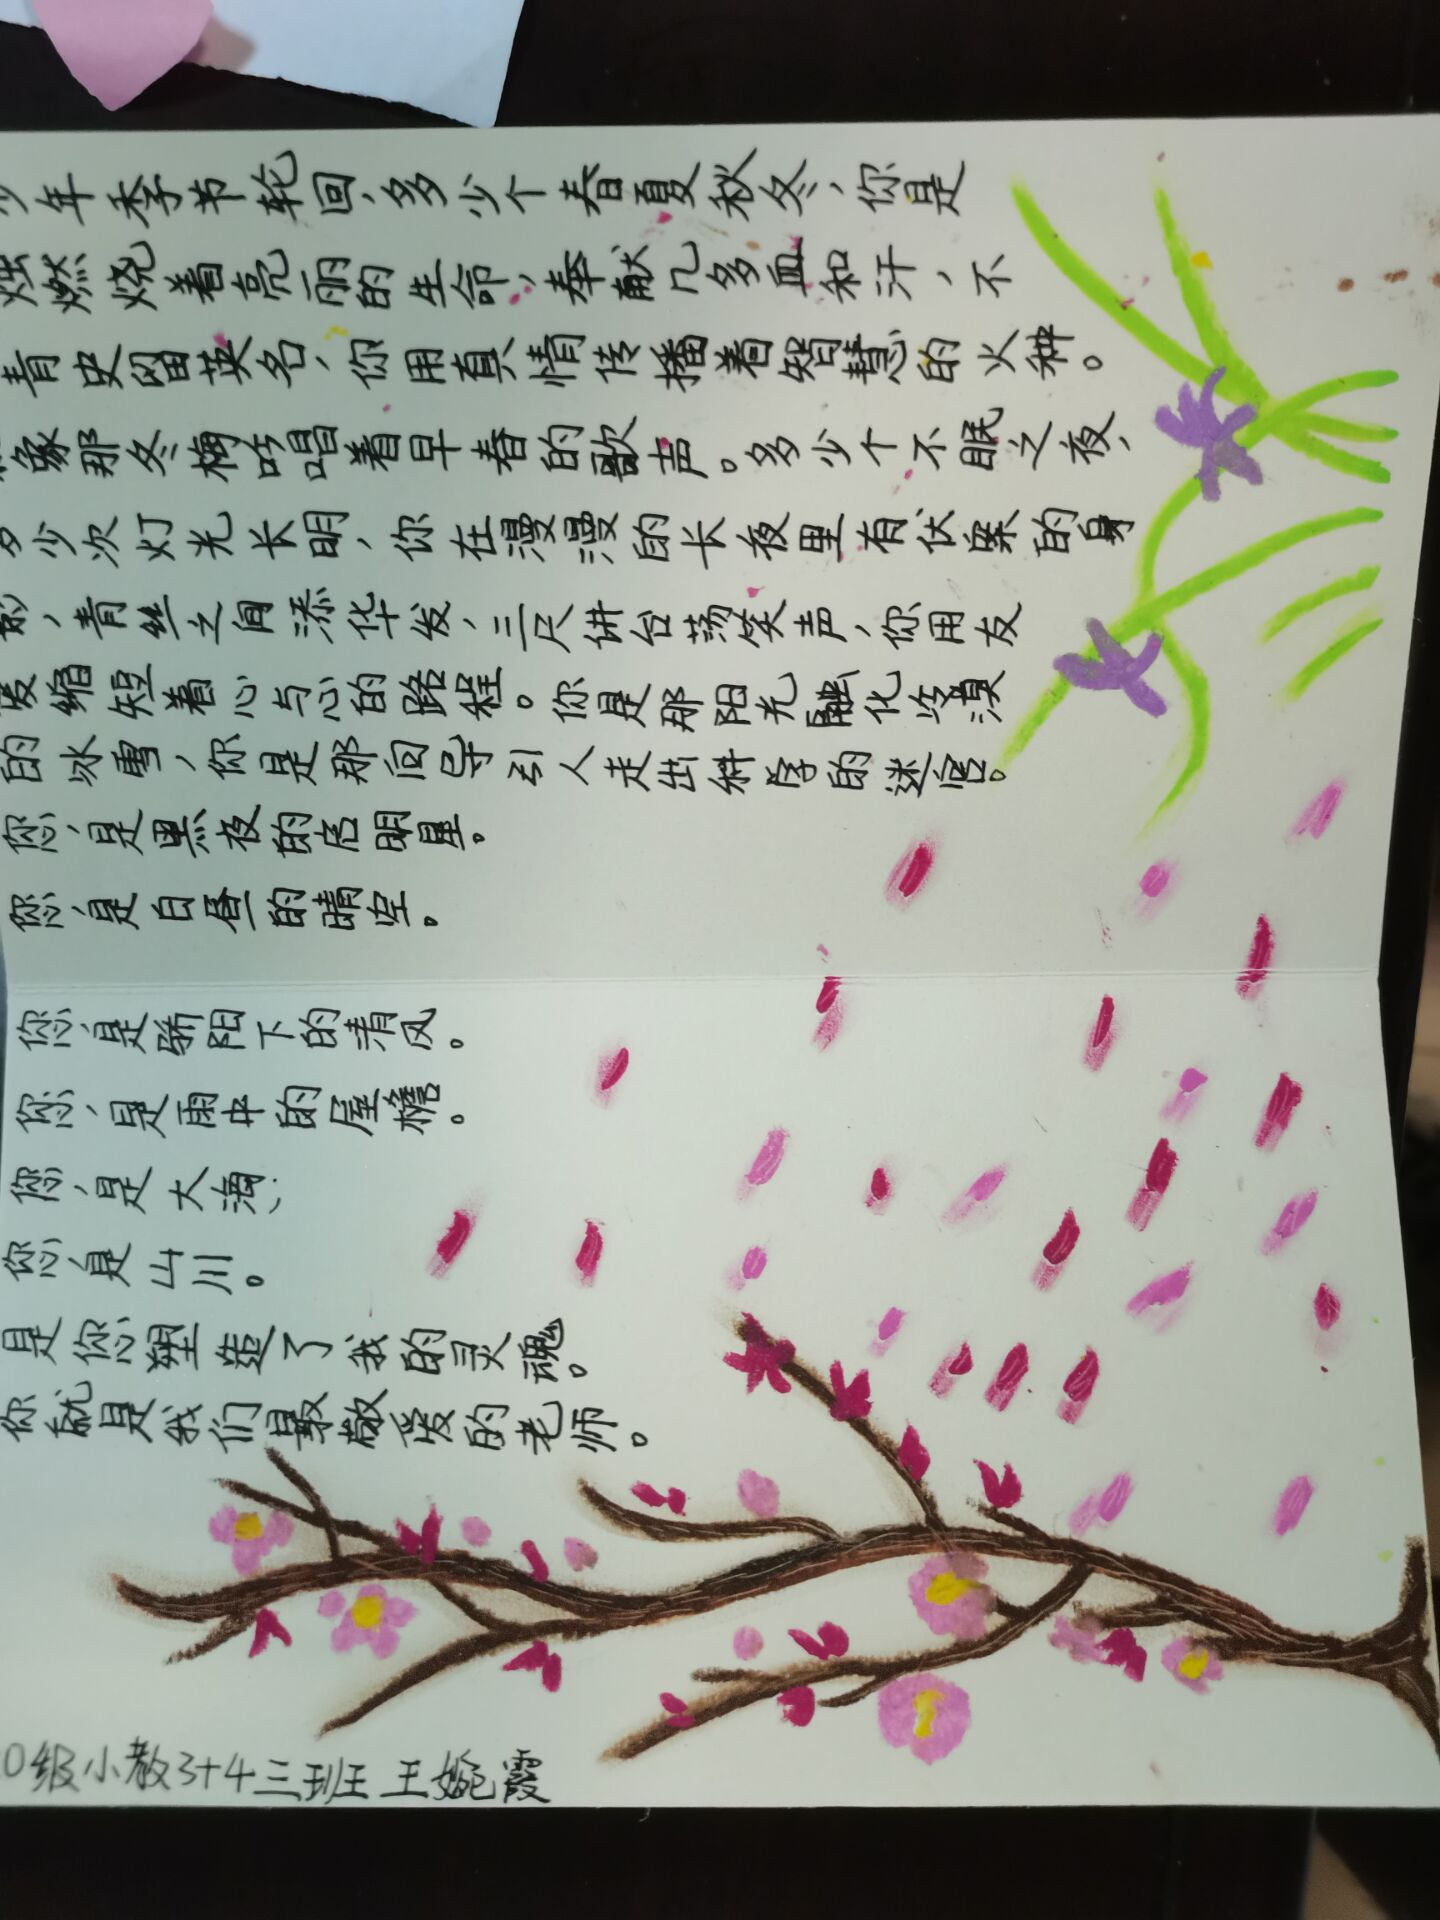 少年季节轮回,多少个春夏秋冬,你是
烛燃烧着亮丽的生命,奉献几多血和汗,不
青史留英名,你用真情传播着智慧的火种。
像那冬梅吟唱着早春的歌声。多少个不眠之夜,
多少次灯光长明,你在漫漫的长夜里有伏案的身
影,青丝之间添华发,三尺讲台荡笑声,你用友
爱缩短着心与心的路程。你是那阳光融化冷漠
的冰雪,你是那向导引人走出科学的迷宫。
您,是黑夜的启明星。
您,是白昼的晴空。
您是骄阳下的清风。
您,是雨中的屋檐。
您,是大海、
您,是山川。
是您塑造了我的灵魂。
你就是我们最敬爱的老师。
0级小教3+4三班 王婉霞